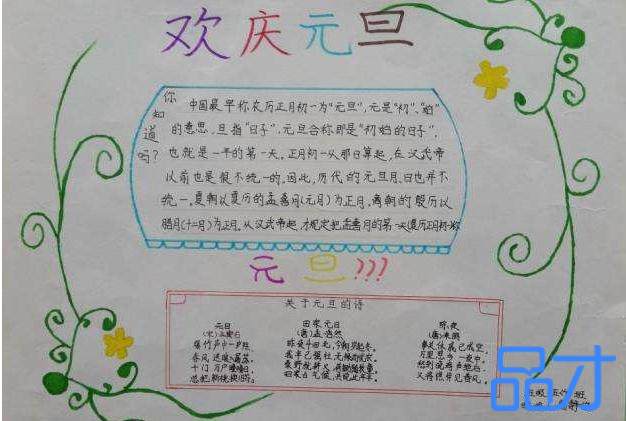 欢庆元旦
你知道吗？
中国最早称农历正月初一为“元旦”，元是“初”、“始”
的意思，旦指“日子”，元旦合称即是“初始的日子”，
也就是一年的第一天。正月初一从那日算起，在汉武帝
以前也是很不统一的。因此，历代的元旦月、日也并不
统一。夏朝以夏历的孟喜月(元月)为正月，商朝的殷历以
腊月(十二月)为正月，从汉武帝起，才规定把孟喜月的第一天(夏历正月初一)称
元旦???
关于元旦的诗
元日
(宋)王安石
爆竹声中一岁除，
春风送暖入屠苏。
千门万户曈曈日，
总把新桃换旧符。
田家元日
(唐)孟浩然
昨夜斗回北，今朝岁起东。
我年已强仕，无禄尚忧农。
桑野就耕父，荷锄随牧童。
田家占气候，共说此年丰。
除夜
(唐)来鹄
事关休戚已成空，
万里思今一夜中。
愁到晓鸡声绝后，
又将憔悴见春风。
品才